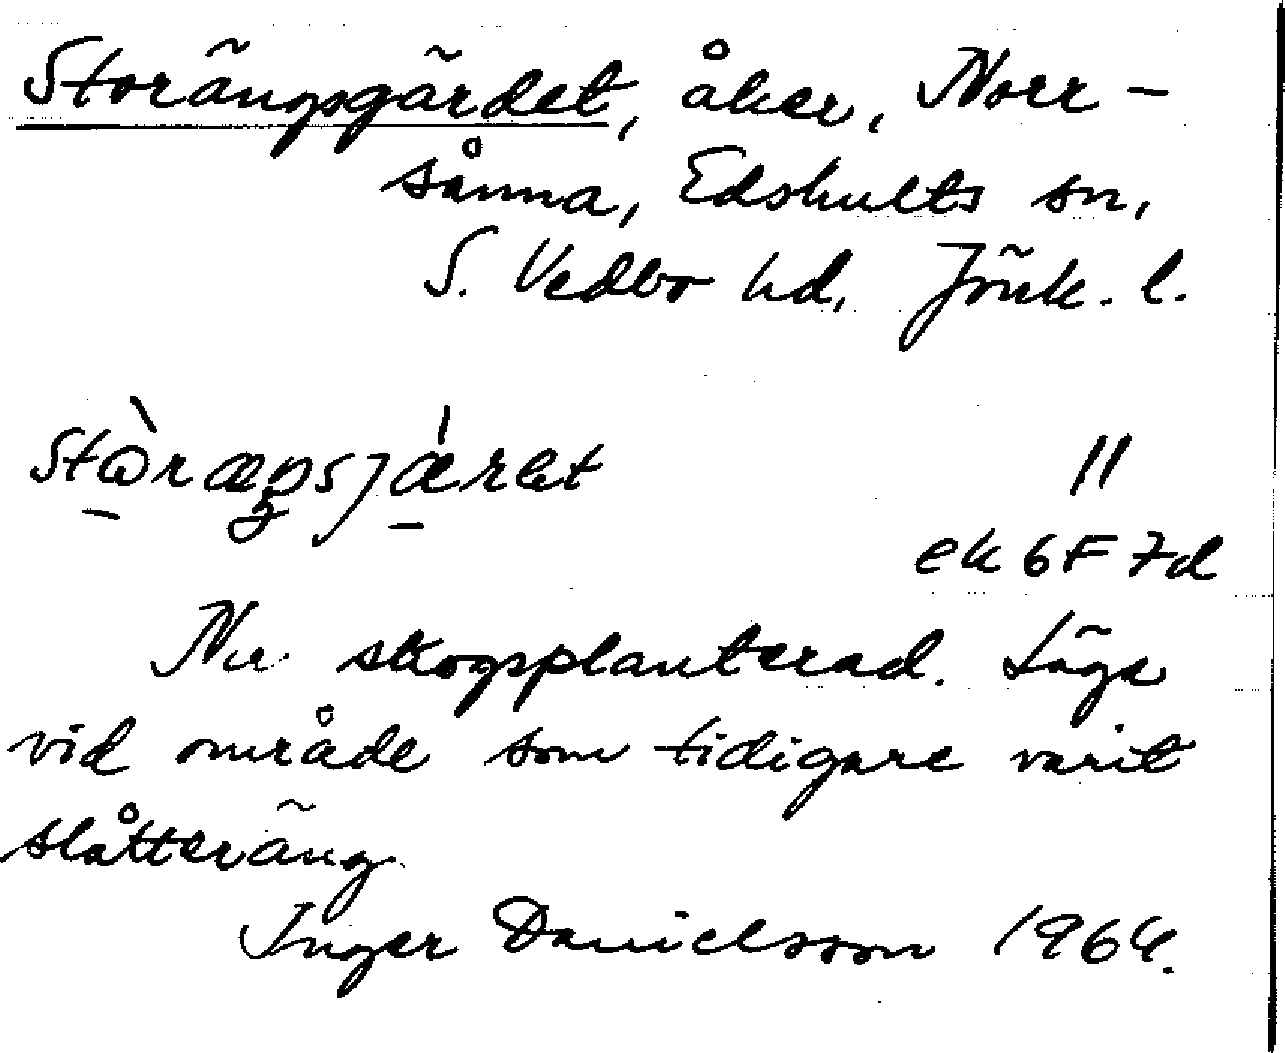 Storängsgärdet, åker, Norr-
sånna, Edshults sn,
S. Vedbo hd, Jönk. l.
//
ek 6F 7d
Nu skogsplanterad. Lägs
vid område som tidigare varit
slåtteräng
Inger Danielsson 1964.